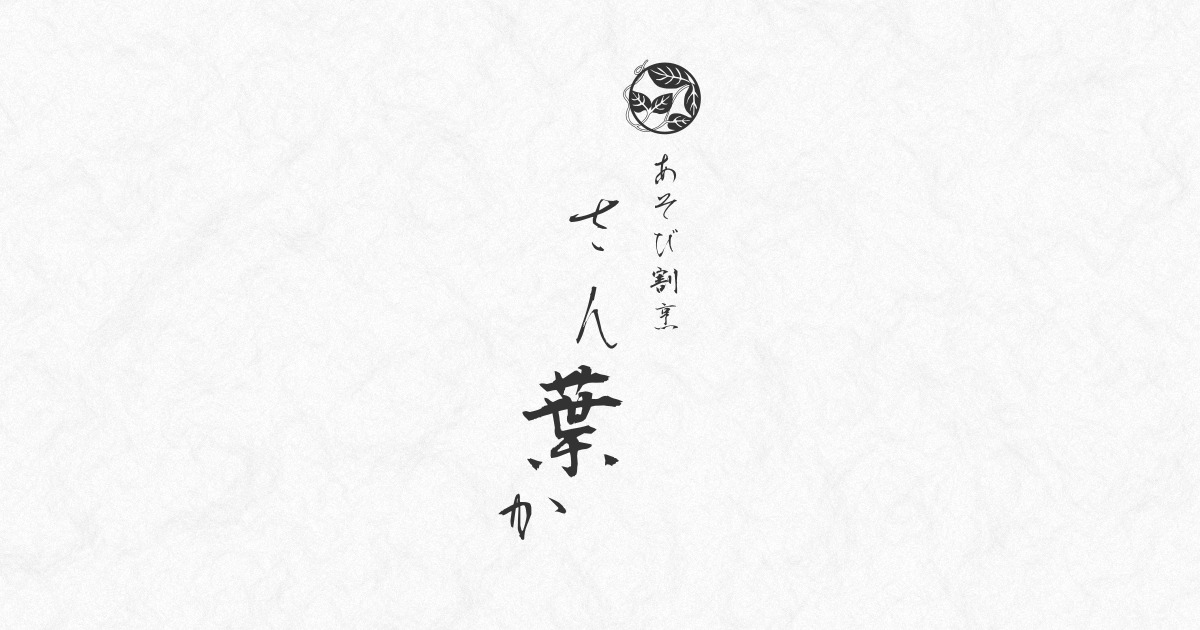 あそび割烹
さん葉か